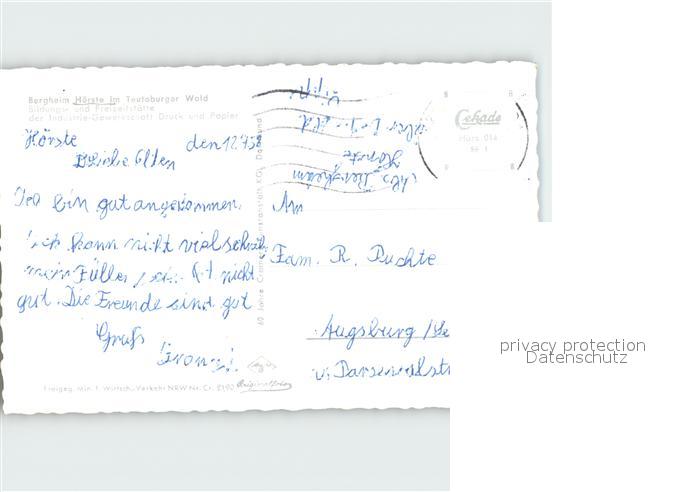 Bergheim Hörste im Teutoburger Wald
Bildungs- und Freizeitstätte
der Industrie-Gewerkschaft Druck und Papier
Hörste
den 12.7.58
Liebe Eltern
Ich bin gut angekommen.
Ich kann nicht viel schreib
mein Füller ist nicht
gut. Die Freunde sind gut
Gruß
Franzi.
Freigeg. Min. f. Wirtsch.-Verkehr NRW Nr. Cr. 2190 Originalfoto
60 Jahre Cramers Kunstanstalt KG., Dortmund
Lippe
über Detmold
Hörste
Bergheim
An
Fam. R. Puchte
Augsburg
Cekade
privacy protection
Datenschutz